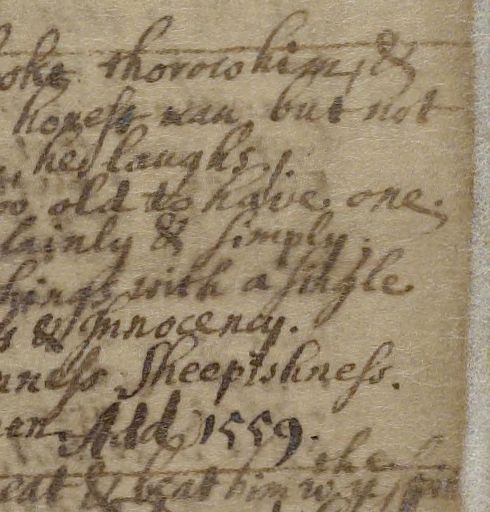 thorow him, &
honest man, but not
he laughs,
old to have one.
lainly & simply.
hings with a single
& Innocency.
ness Sheepishness.
Add 1559.
the
eat & beat him wth ye